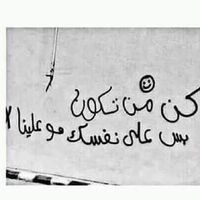 كن من تكون
بس على نفسك مو علينا